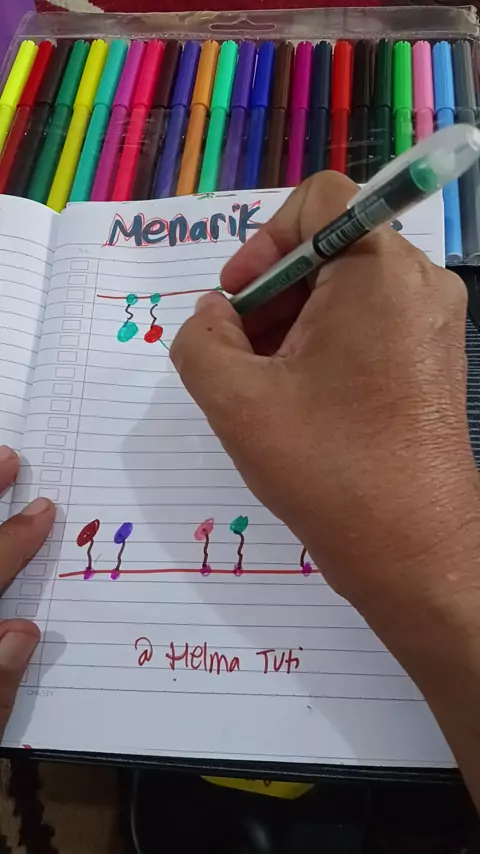 Menarik
@ Helma Tuti